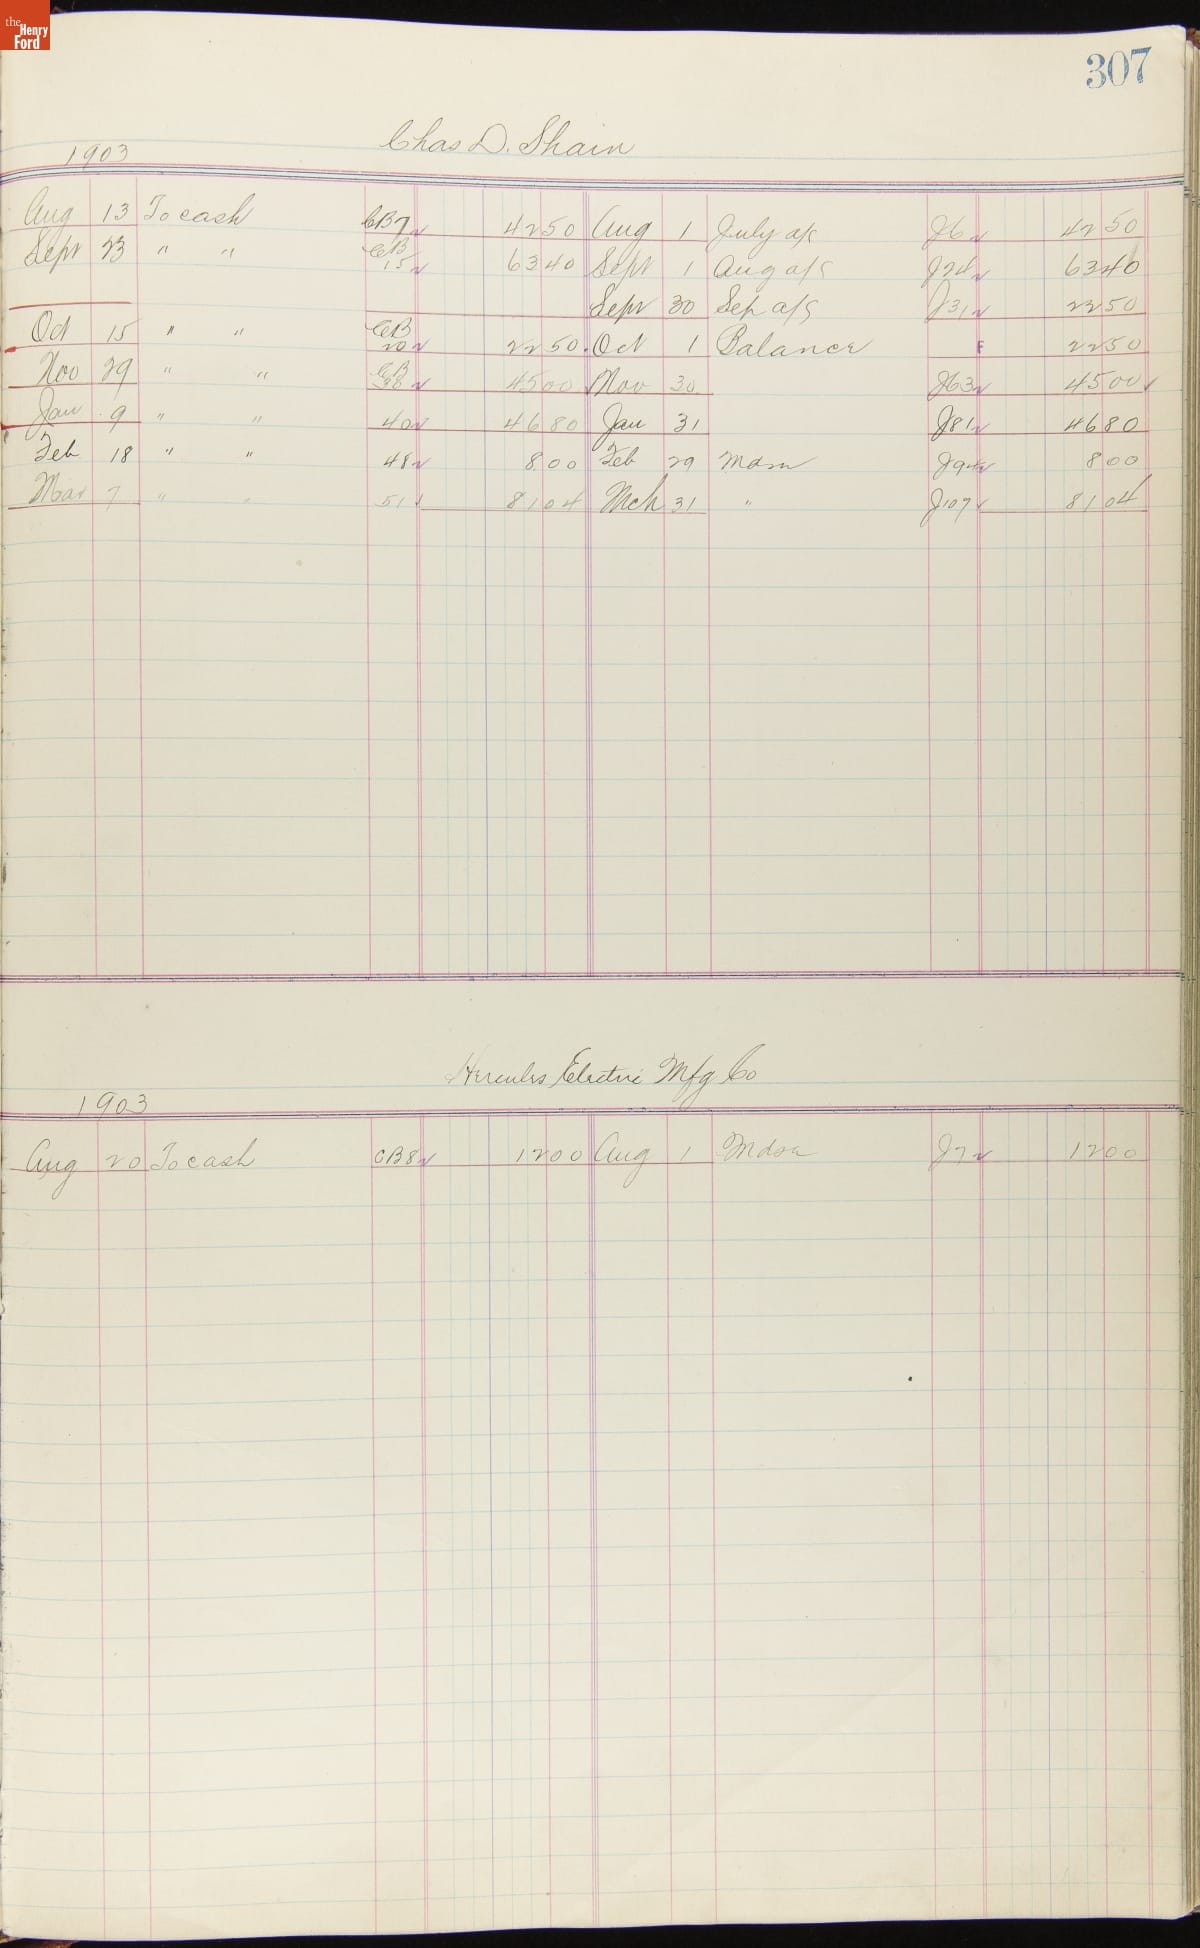 the Henry Ford
307
1903 Chas D. Shain
Aug 13 To cash CB7 42 50 Aug 1 July a/c J6 42 50
Sept 23 " " CB 15 63 40 Sept 1 Aug a/c J24 63 40
Sept 30 Sep a/c J31 22 50
Oct 15 " " CB 20 22 50 Oct 1 Balance F 22 50
Nov 29 " " CB 45 00 Nov 30 J63 45 00
Jan 9 " " 40 46 80 Jan 31 J81 46 80
Feb 18 " " 48 8 00 Feb 29 Mdse 8 00
Mar 7 " " 51 81 04 Mch 31 " J107 81 04
Hercules Electric Mfg Co
1903
Aug 20 To cash CB8 12 00 Aug 1 Mdse J7 12 00